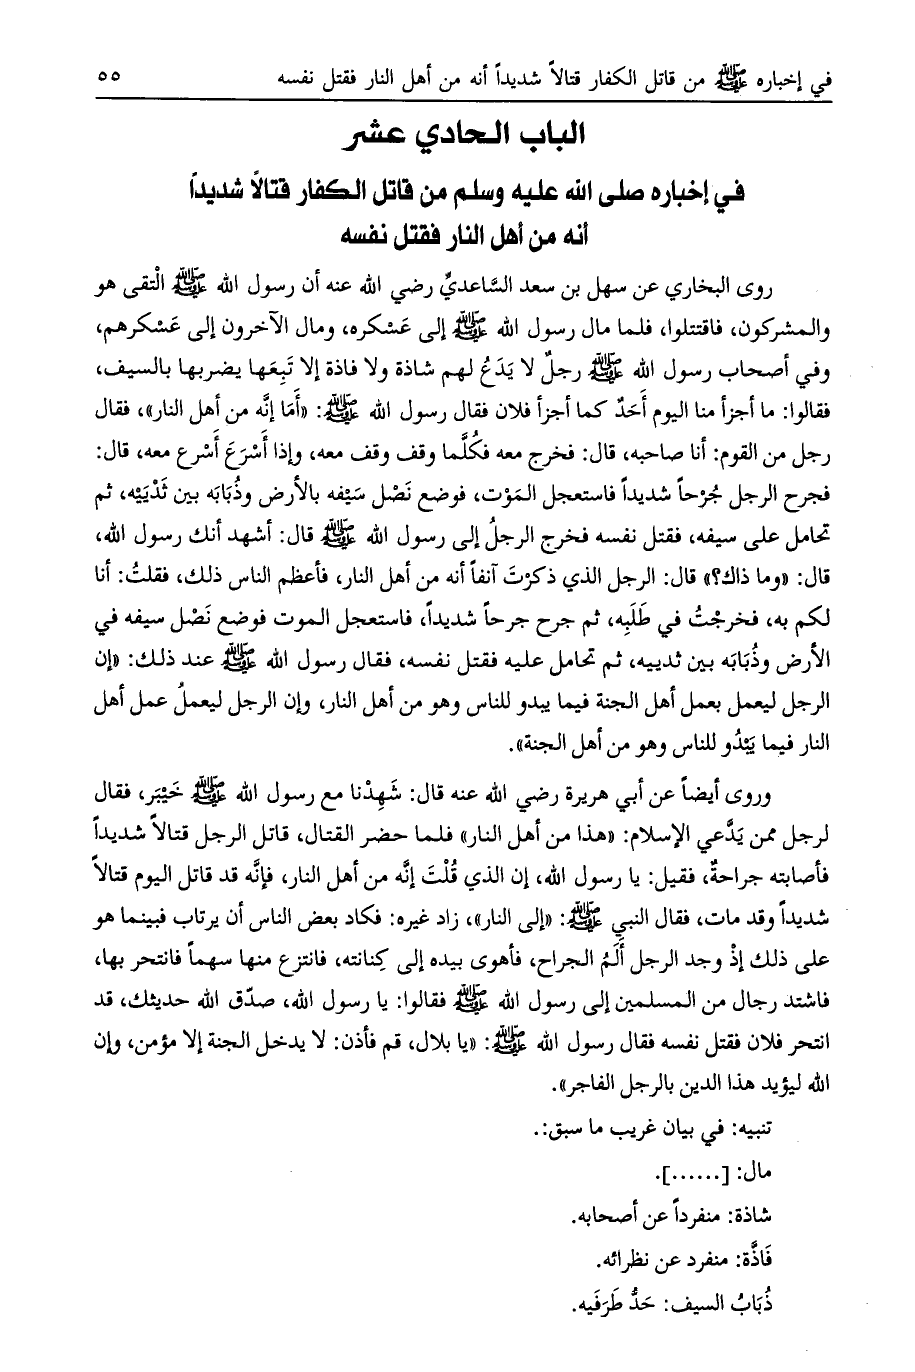 في إخباره ﷺ من قاتل الكفار قتالاً شديداً أنه من أهل النار فقتل نفسه ٥٥
الباب الحادي عشر
في إخباره صلى الله عليه وسلم من قاتل الكفار قتالاً شديداً
أنه من أهل النار فقتل نفسه
روى البخاري عن سهل بن سعد السَّاعديِّ رضي الله عنه أن رسول الله ﷺ الْتقى هو
والمشركون، فاقتتلوا، فلما مال رسول الله ﷺ إلى عَسْكره، ومال الآخرون إلى عَسْكرهم،
وفي أصحاب رسول الله ﷺ رجلٌ لا يَدَعُ لهم شاذة ولا فاذة إلا تَبِعَها يضربها بالسيف،
فقالوا: ما أجزأ منا اليوم أَحَدٌ كما أجزأ فلان فقال رسول الله ﷺ: «أَمَا إنَّه من أهل النار»، فقال
رجل من القوم: أنا صاحبه، قال: فخرج معه فكُلَّما وقف وقف معه، وإذا أَسْرَعَ أَسْرع معه، قال:
فجرح الرجل جُرْحاً شديداً فاستعجل المَوْت، فوضع نَصْل سَيْفه بالأرض وذُبَابَه بين ثَدْيَيْه، ثم
تحامل على سيفه، فقتل نفسه فخرج الرجلُ إلى رسول الله ﷺ قال: أشهد أنك رسول الله،
قال: «وما ذاك؟» قال: الرجل الذي ذكرْتَ آنفاً أنه من أهل النار، فأعظم الناس ذلك، فقلتُ: أنا
لكم به، فخرجْتُ في طَلَبِه، ثم جرح جرحاً شديداً، فاستعجل الموت فوضع نَصْل سيفه في
الأرض وذُبَابَه بين ثدييه، ثم تحامل عليه فقتل نفسه، فقال رسول الله ﷺ عند ذلك: «إن
الرجل ليعمل بعمل أهل الجنة فيما يبدو للناس وهو من أهل النار، وإن الرجل ليعملُ عمل أهل
النار فيما يَبْدُو للناس وهو من أهل الجنة».
وروى أيضاً عن أبي هريرة رضي الله عنه قال: شَهِدْنا مع رسول الله ﷺ خَيْبَر، فقال
لرجل ممن يَدَّعي الإسلام: «هذا من أهل النار» فلما حضر القتال، قاتل الرجل قتالاً شديداً
فأصابته جراحةٌ، فقيل: يا رسول الله، إن الذي قُلْتَ إنَّه من أهل النار، فإنَّه قد قاتل اليوم قتالاً
شديداً وقد مات، فقال النبي ﷺ: «إلى النار»، زاد غيره: فكاد بعض الناس أن يرتاب فبينما هو
على ذلك إذْ وجد الرجل أَلَمُ الجراح، فأهوى بيده إلى كِنانته، فانتزع منها سهماً فانتحر بها،
فاشتد رجال من المسلمين إلى رسول الله ﷺ فقالوا: يا رسول الله، صدّق الله حديثك، قد
انتحر فلان فقتل نفسه فقال رسول الله ﷺ: «يا بلال، قم فأذن: لا يدخل الجنة إلا مؤمن، وإن
الله ليؤيد هذا الدين بالرجل الفاجر».
تنبيه: في بيان غريب ما سبق:.
مال: [......].
شاذة: منفرداً عن أصحابه.
فَاذَّة: منفرد عن نظرائه.
ذُبَابُ السيف: حَدُّ طَرَفَيه.